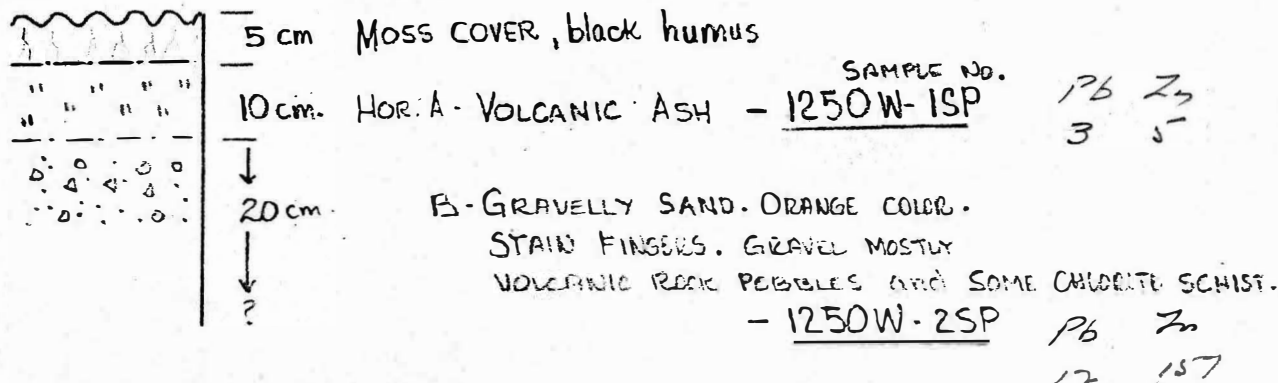 5 cm MOSS COVER, black humus
SAMPLE NO.
10 cm. HOR. A - VOLCANIC ASH - 1250W-1SP Pb Zn
3 5
20 cm. B - GRAVELLY SAND. ORANGE COLOR.
STAIN FINGERS. GRAVEL MOSTLY
VOLCANIC ROCK PEBBLES and SOME CHLORITE SCHIST.
?
- 1250W-2SP Pb Zn
12 157